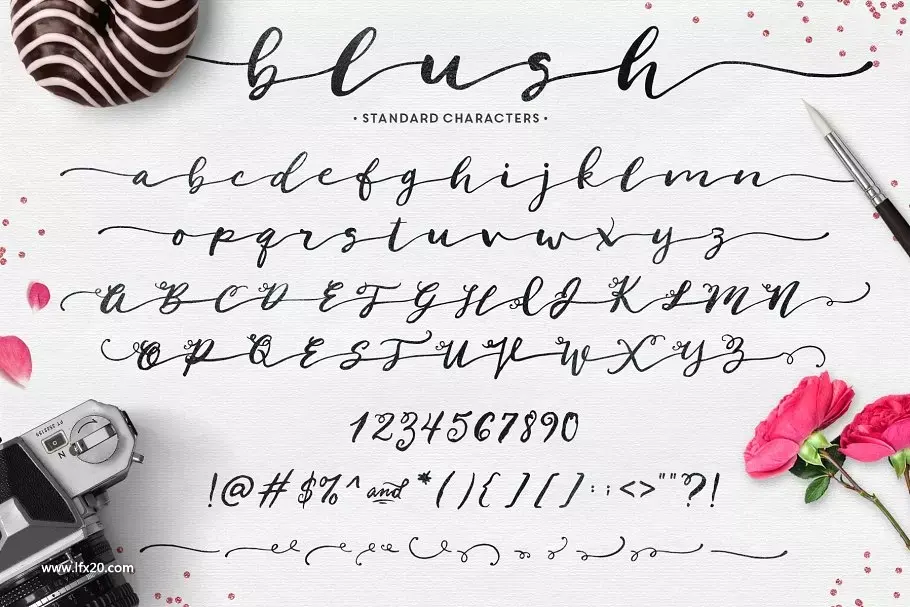 blush
• STANDARD CHARACTERS •
a b c d e f g h i j k l m n
o p q r s t u v w x y z
A B C D E F G H I J K L M N
O P Q E S T U V W X Y Z
1 2 3 4 5 6 7 8 9 0
! @ # $ % ^ and * ( ) { } [ ] : ; < > " " ? !
www.lfx20.com